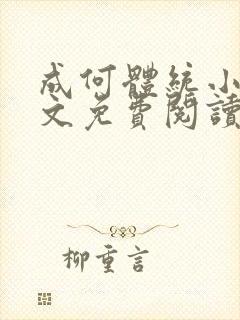 成何體統小
文免費閱讀
柳重言